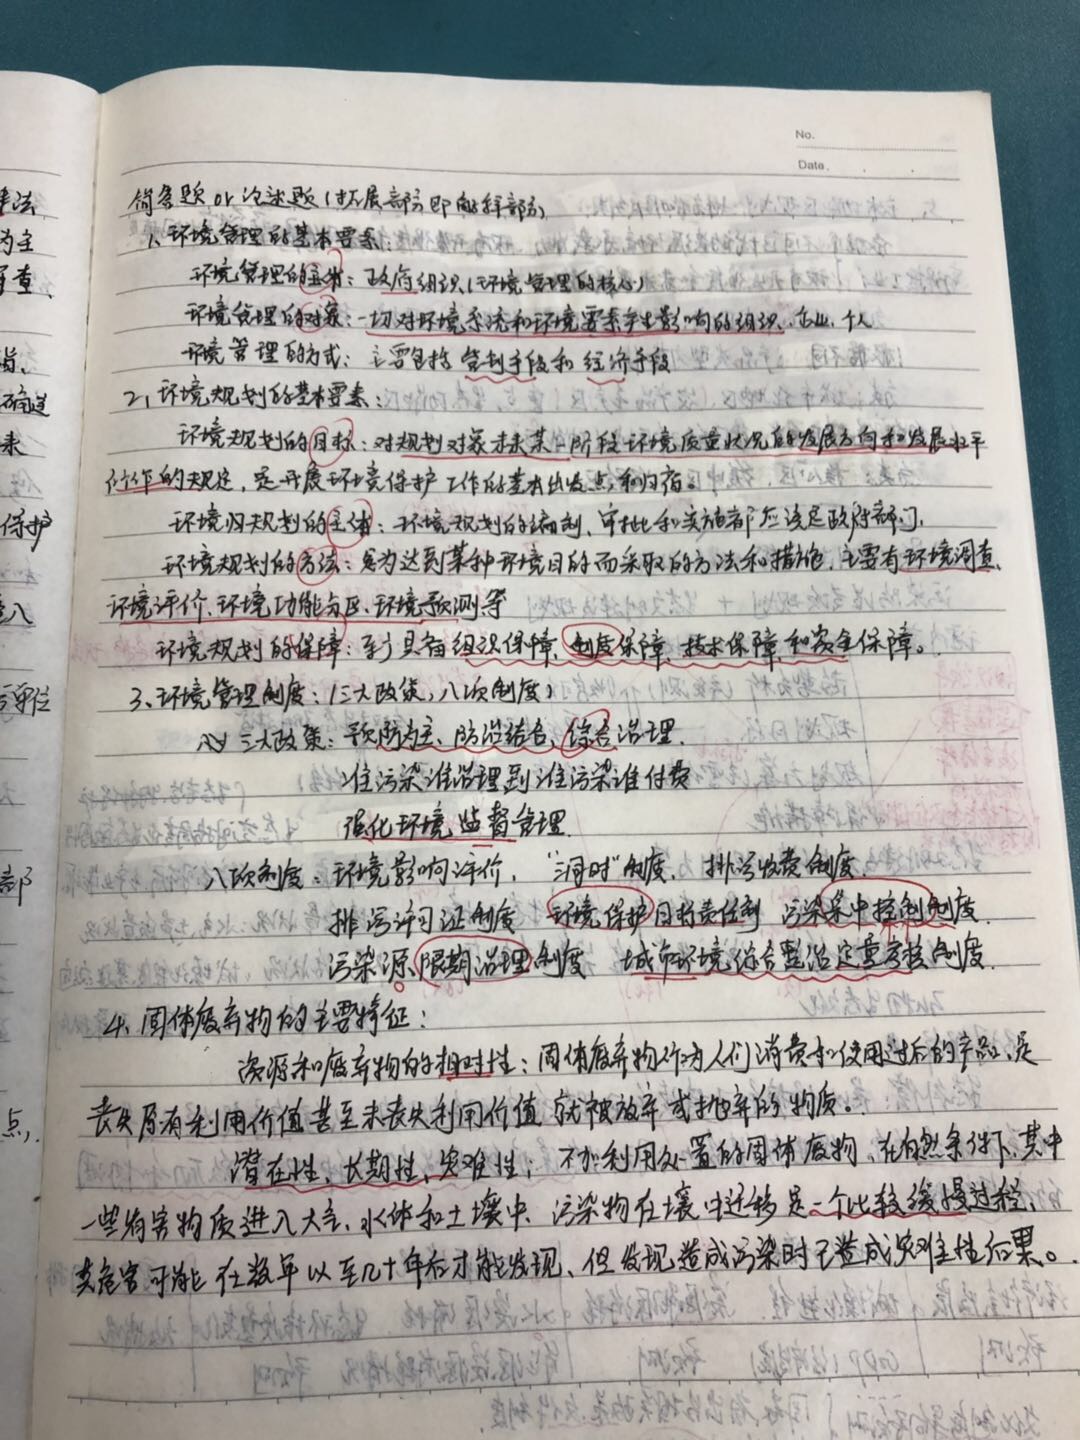 No.
Date.
简答题 or 论述题（拓展部分即解释部分）
1、环境管理的基本要素：
环境管理的主体：政府组织（环境管理的核心）
环境管理的对象：一切对环境系统和环境要素产生影响的组织、企业、个人
环境管理的方式：主要包括管制手段和经济手段
2、环境规划的基本要素：
环境规划的目标：对规划对象未来某一阶段环境质量状况的发展方向和发展水平
所作的规定，是开展环境保护工作的基本出发点和归宿。
环境规划的主体：环境规划的编制、审批和实施都应该是政府部门。
环境规划的方法：是为达到某种环境目的而采取的方法和措施，主要有环境调查、
环境评价、环境功能分区、环境预测等
环境规划的保障：至少具备组织保障、制度保障、技术保障和资金保障。
3、环境管理制度：（三大政策，八项制度）
三大政策：预防为主、防治结合、综合治理。
谁污染谁治理到谁污染谁付费
强化环境监督管理.
八项制度：环境影响评价，“三同时”制度，排污收费制度，
排污许可证制度 环境保护目标责任制 污染集中控制制度、
污染源限期治理制度 城市环境综合整治定量考核制度.
4、固体废弃物的主要特征：
资源和废弃物的相对性：固体废弃物作为人们消费和使用过后的产品，是
丧失原有利用价值甚至未丧失利用价值就被放弃或抛弃的物质。
潜在性、长期性、灾难性：不加利用处置的固体废物，在自然条件下，其中
一些有害物质进入大气、水体和土壤中，污染物在壤中迁移是一个比较缓慢过程，
其危害可能在数年以至几十年后才能发现，但发现造成污染时已造成灾难性后果。
法
为主
保护
单位
部
点，